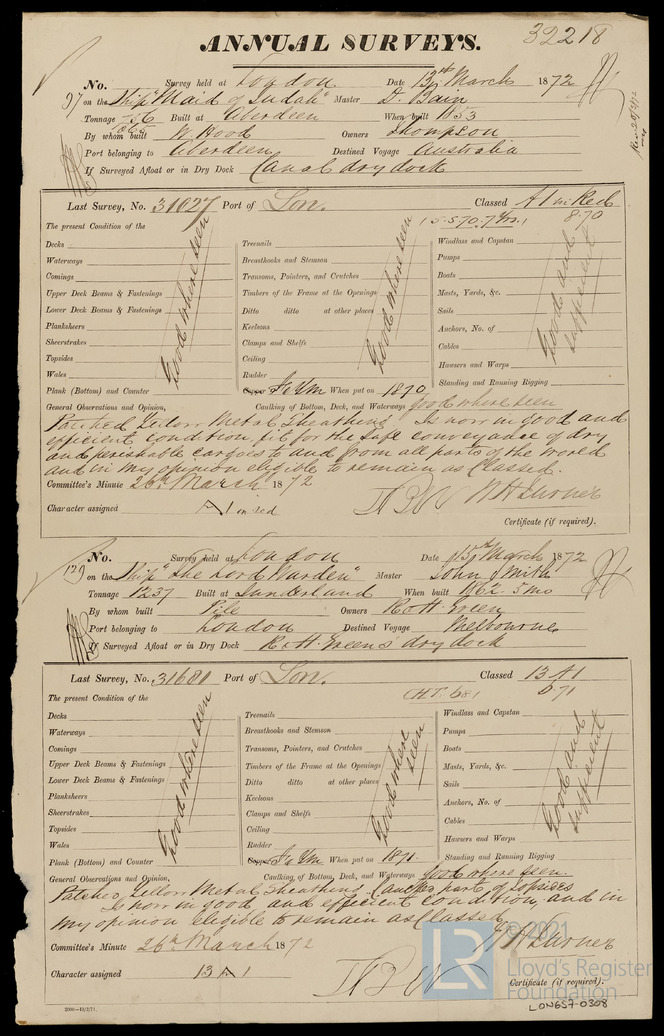 32218
ANNUAL SURVEYS.
No. Survey held at London Date 13th March 1872
97 on the Ship "Maid of Judah" Master D. Bain
Tonnage Built at Aberdeen When built 1853
By whom built W. Hood Owners Thompson
Port belonging to Aberdeen Destined Voyage Australia
If Surveyed Afloat or in Dry Dock Canal dry dock
Last Survey, No. 31027 Port of Lon. Classed A1 in Red
The present Condition of the 15.5.70.7 Yrs. 8.70
Decks Treenails Windlass and Capstan
Waterways Breasthooks and Stemson Pumps
Comings Transoms, Pointers, and Crutches Boats
Upper Deck Beams & Fastenings Timbers of the Frame at the Openings Masts, Yards, &c.
Lower Deck Beams & Fastenings Ditto ditto at other places Sails
Planksheers Keelsons Anchors, No. of
Sheerstrakes Clamps and Shelfs Cables
Topsides Ceiling Hawsers and Warps
Wales Rudder Standing and Running Rigging
Good where seen
Good where seen
Good and sufficient
Plank (Bottom) and Counter Copper F & YM When put on 1870
General Observations and Opinion, Caulking of Bottom, Deck, and Waterways good where seen
Patched Yellow Metal Sheathing. Is now in good and
efficient condition, fit for the safe conveyance of dry
and perishable cargoes to and from all parts of the world
and in my opinion eligible to remain as Classed.
Committee's Minute 26th March 1872
Character assigned A1 in red W H Turner
Certificate (if required).
No. Survey held at London Date 15th March 1872
129 on the Ship "The Lord Warden" Master John Smith
Tonnage 1237 Built at Sunderland When built 1862. 5 mo
By whom built Pile Owners R & H. Green
Port belonging to London Destined Voyage Melbourne
If Surveyed Afloat or in Dry Dock R & H. Green's dry dock
Last Survey, No. 31681 Port of Lon. Classed 13 A1
The present Condition of the 6.71
Decks Treenails Windlass and Capstan
Waterways Breasthooks and Stemson Pumps
Comings Transoms, Pointers, and Crutches Boats
Upper Deck Beams & Fastenings Timbers of the Frame at the Openings Masts, Yards, &c.
Lower Deck Beams & Fastenings Ditto ditto at other places Sails
Planksheers Keelsons Anchors, No. of
Sheerstrakes Clamps and Shelfs Cables
Topsides Ceiling Hawsers and Warps
Wales Rudder Standing and Running Rigging
Good where seen
Good where seen
Good and sufficient
Plank (Bottom) and Counter Copper F & YM When put on 1871
General Observations and Opinion, Caulking of Bottom, Deck, and Waterways good where seen.
Patched Yellow Metal Sheathing. part of topsides
Is now in good and efficient condition, and in
my opinion eligible to remain as Classed
Committee's Minute 26th March 1872 W H Turner
Character assigned 13 A 1
Certificate (if required).
© 2021
LR Lloyd's Register
Foundation
LON657-0308